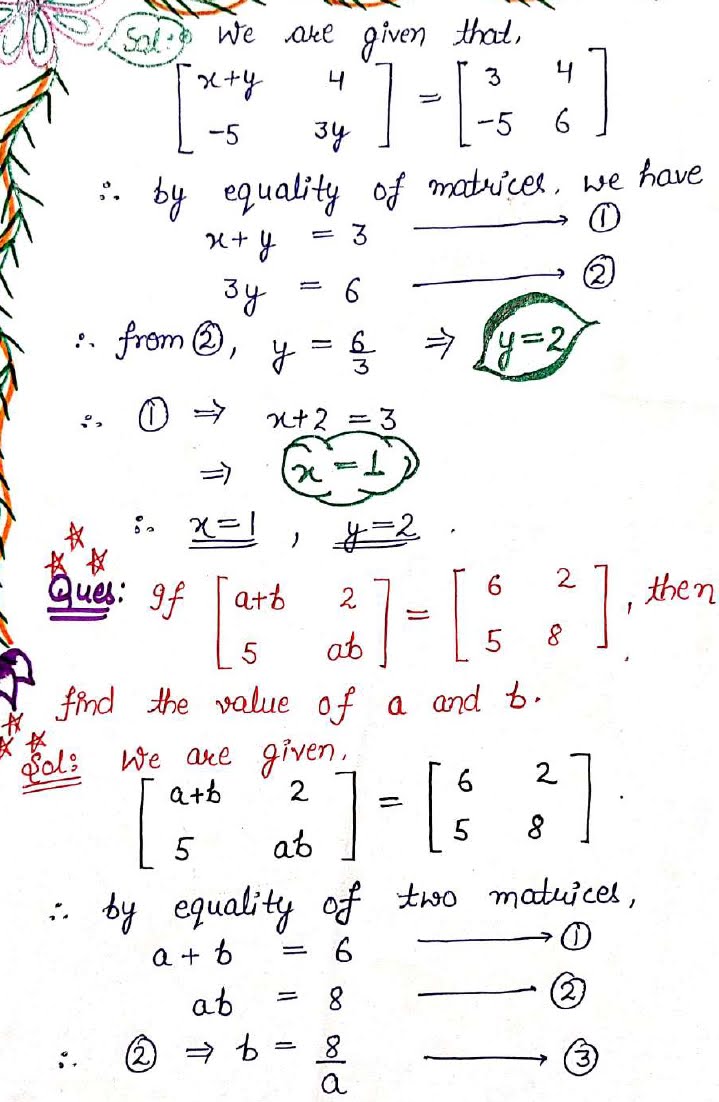 Sol:- We are given that,
[ x+y 4 ] = [ 3 4 ]
[ -5 3y ] [ -5 6 ]
∴ by equality of matrices, we have
x+y = 3 → ①
3y = 6 → ②
∴ from ②, y = 6/3 ⇒ y=2
∴ ① ⇒ x+2 = 3
⇒ x=1
∴ x=1, y=2.
Ques: If [ a+b 2 ] = [ 6 2 ], then
[ 5 ab ] [ 5 8 ]
find the value of a and b.
Sol: We are given,
[ a+b 2 ] = [ 6 2 ].
[ 5 ab ] [ 5 8 ]
∴ by equality of two matrices,
a + b = 6 → ①
ab = 8 → ②
∴ ② ⇒ b = 8/a → ③